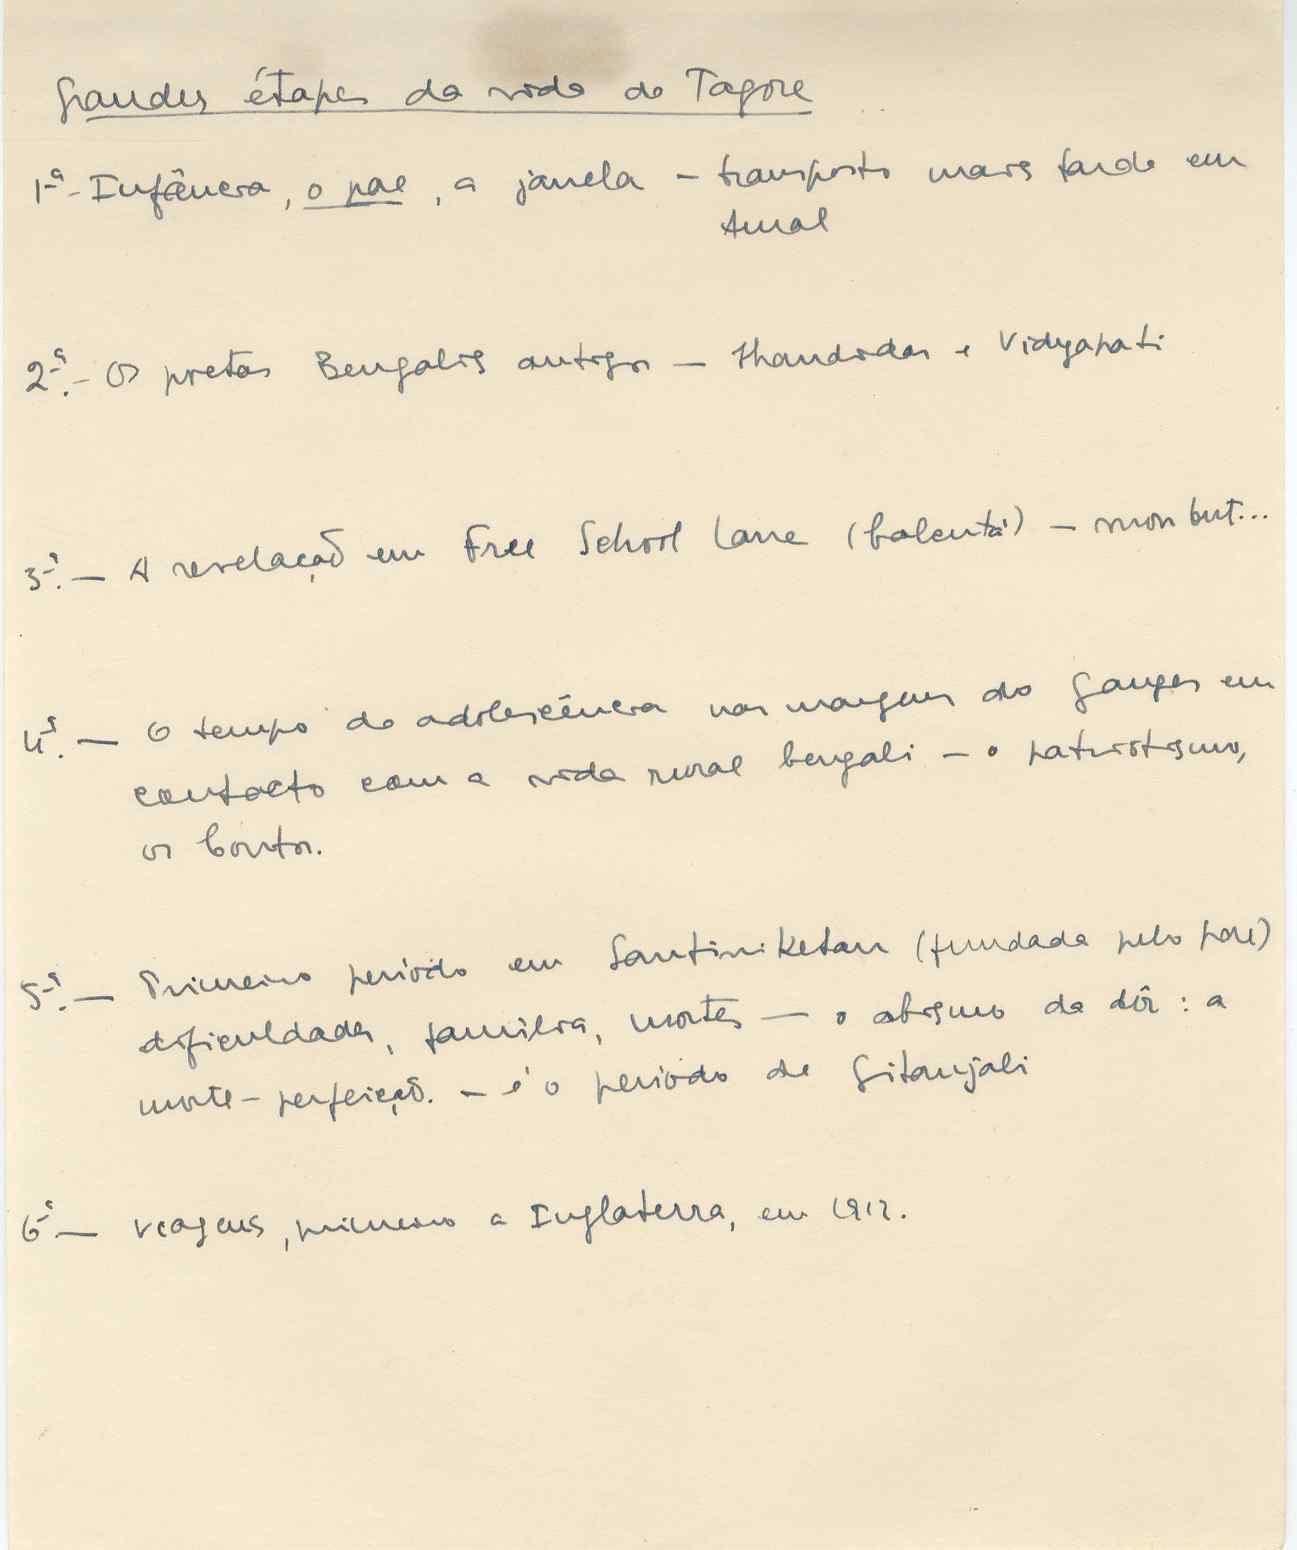 Grandes étapes da vida de Tagore
1ª - Infância, o pae, a janela - transposto mais tarde em
Amal
2ª. - Os poetas Bengalis antigos - Chandidas e Vidyapati
3ª. - A revelação em Free School Lane (Calcutá) - mon but...
4ª. - O tempo da adolescência nas margens do Ganges em
contacto com a vida rural bengali - o patriotismo,
os Contos.
5ª. - Primeiro período em Santiniketan (fundada pelo pae)
dificuldades, familia, mortes - o abismo da dôr : a
morte - perfeição. - é o periodo de Gitanjali
6ª - Viagens, primeiro a Inglaterra, em 1912.